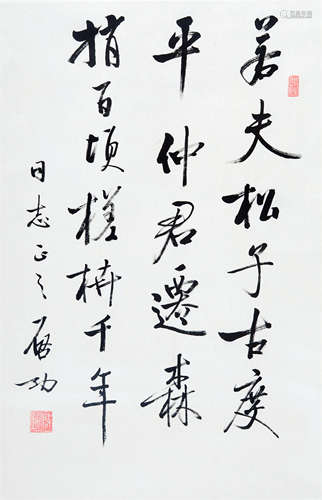 若夫松子古度
平仲君遷森
梢百頃槎枿千年
同志正之
啟功